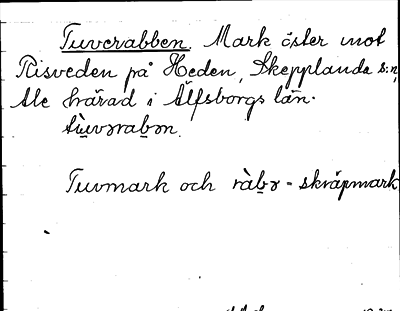 Tuverabben. Mark öster mot
Risveden på Heden, Skepplanda s:n,
Ale härad i Älfsborgs län.
tùvərabən.
Tuvmark och ràbə - skräpmark